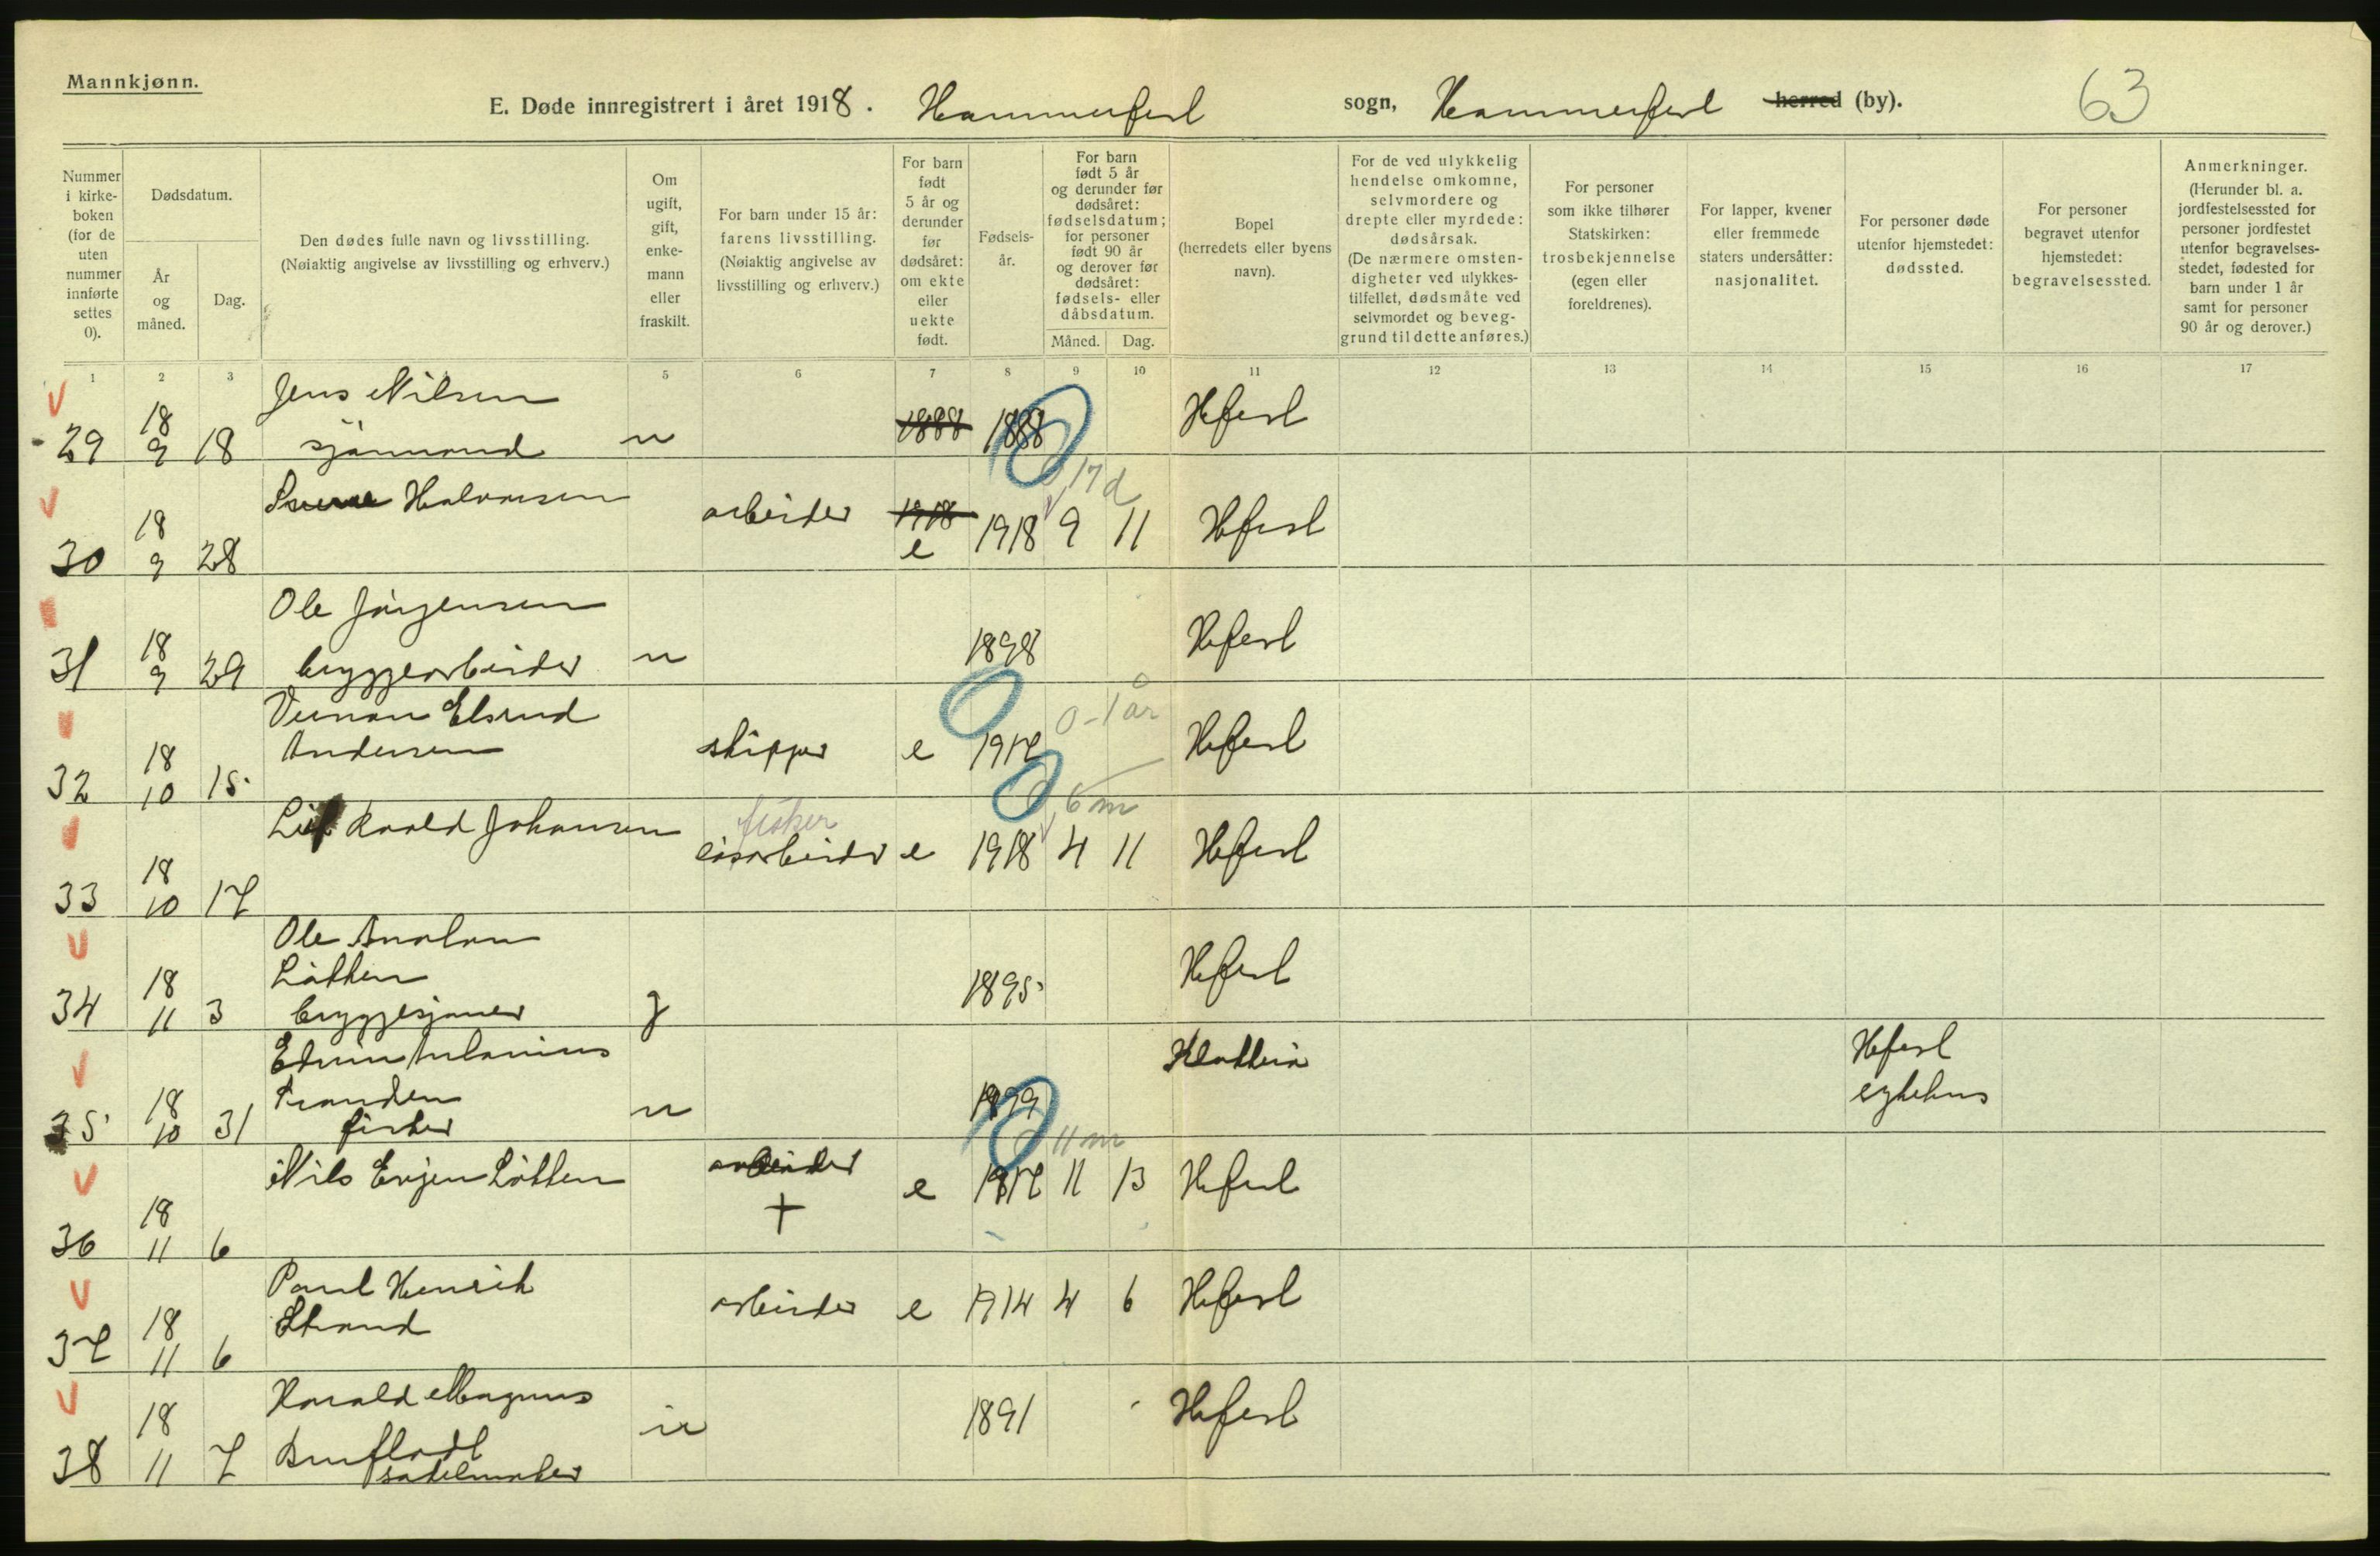 Mannkjønn.
E. Døde innregistrert i året 1918. Hammerfest sogn, Hammerfest herred (by). 63
Nummer i kirke-boken (for de uten nummer innførte settes 0).
Dødsdatum.
År og måned.
Dag.
Den dødes fulle navn og livsstilling.
(Nøiaktig angivelse av livsstilling og erhverv.)
Om ugift, gift, enke-mann eller fraskilt.
For barn under 15 år: farens livsstilling. (Nøiaktig angivelse av livsstilling og erhverv.)
For barn født 5 år og derunder før dødsåret: om ekte eller uekte født.
Fødsels-år.
For barn født 5 år og derunder før dødsåret: fødselsdatum; for personer født 90 år og derover før dødsåret: fødsels- eller dåbsdatum.
Måned. Dag.
Bopel (herredets eller byens navn).
For de ved ulykkelig hendelse omkomne, selvmordere og drepte eller myrdede: dødsårsak. (De nærmere omsten-digheter ved ulykkes-tilfellet, dødsmåte ved selvmordet og beveg-grund til dette anføres.)
For personer som ikke tilhører Statskirken: trosbekjennelse (egen eller foreldrenes).
For lapper, kvener eller fremmede staters undersåtter: nasjonalitet.
For personer døde utenfor hjemstedet: dødssted.
For personer begravet utenfor hjemstedet: begravelsessted.
Anmerkninger. (Herunder bl. a. jordfestelsessted for personer jordfestet utenfor begravelses-stedet, fødested for barn under 1 år samt for personer 90 år og derover.)
1 2 3 5 6 7 8 9 10 11 12 13 14 15 16 17
Jens Nilsen
29 18 9 18 sjømand u 1888 1888 Hfest
Sverre Halvorsen
17 d
30 18 9 28 arbeider 1918 e 1918 9 11 Hfest
Ole Jørgensen
31 18 9 29 bryggearbeider u 1898 Hfest
0-1 år
Andersen
32 18 10 15 skipper e 1917 Hfest
6 m
Leif Roald Johansen fisker
33 18 10 17 e 1918 4 11 Hfest
Ole
Løkken
34 18 11 3 bryggesjauer g 1895 Hfest
Edvin Antonius
35 18 10 31 fisker u 1899 Hfest sykehus
11 m
Nils Løkken arbeider
+
36 18 11 6 e 1917 11 13 Hfest
Paul Henrik
Strand
37 18 11 6 arbeider e 1914 4 6 Hfest
Harald Magnus
38 18 11 7 salmaker u 1891 Hfest